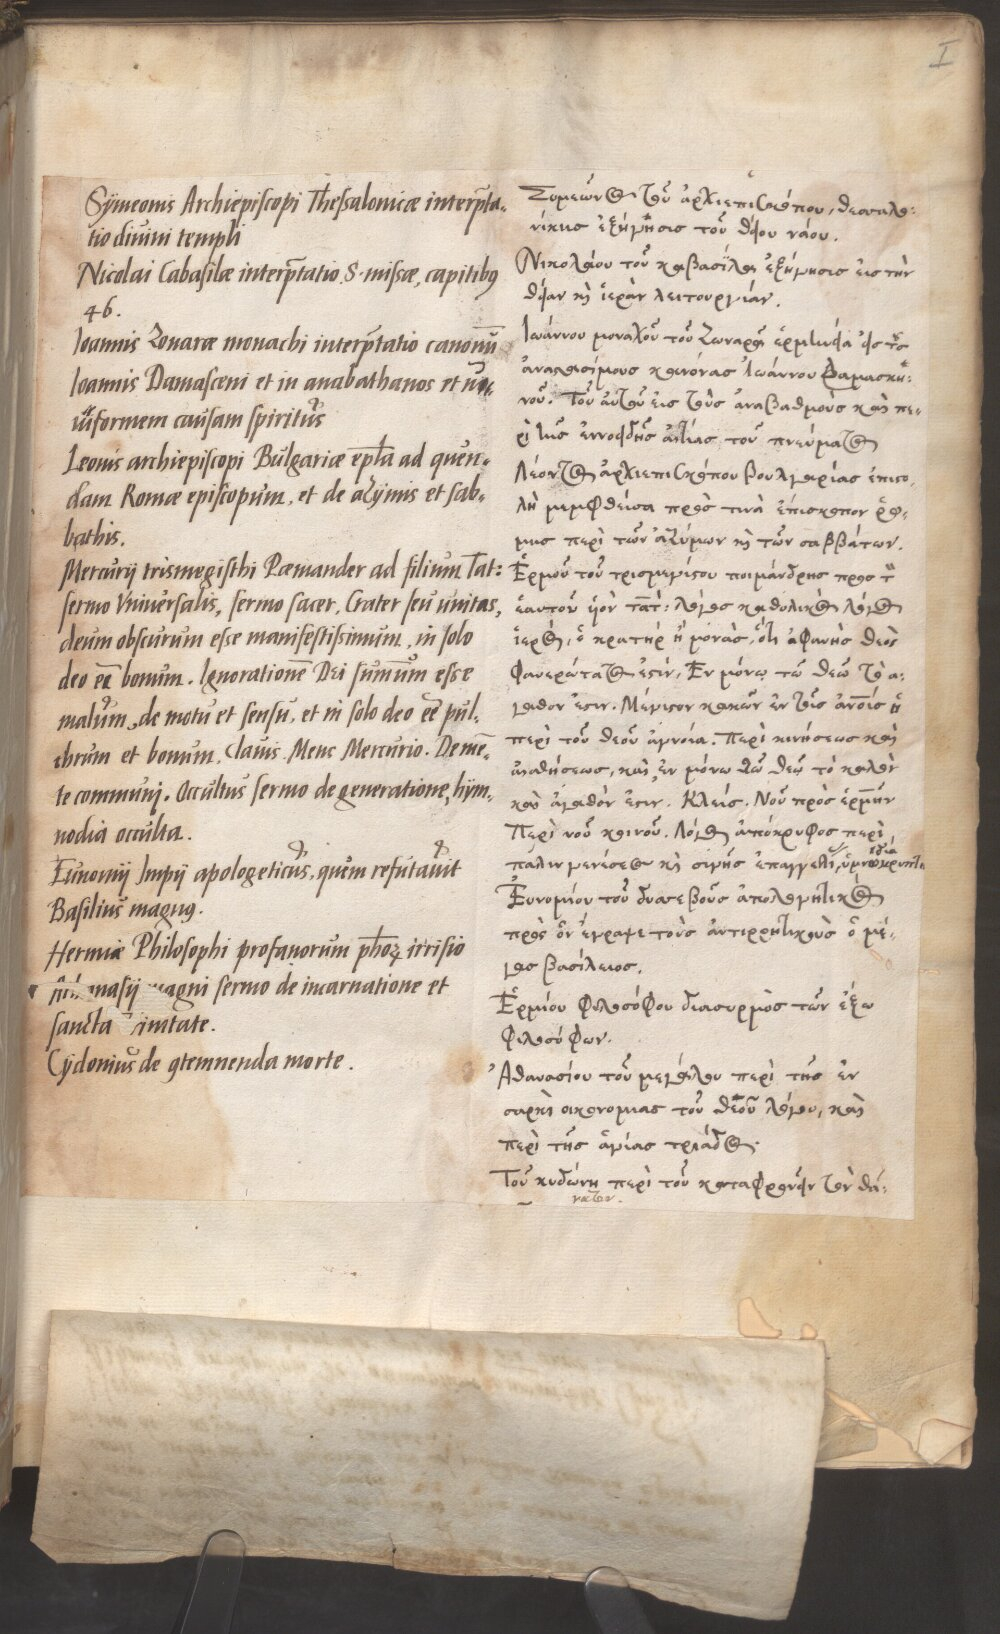 I
Sÿmeonis Archiepiscopi Thessalonicæ interp̄ta-
tio divini templi
Nicolai Cabasilæ interp̄tatio S. missæ, capitibus
46.
Ioannis Zonaræ monachi interp̄tatio canonũ
Ioannis Damasceni et in anabathanos et
formem causam spiritus
Leonis archiepiscopi Bulgariæ epl̃a ad quen-
dam Romæ episcopum, et de azÿmis et sab-
bathis.
Mercurij trismegisthi Pæmander ad filium Tat:
sermo Vniversalis, sermo sacer, Crater seu unitas,
deum obscurum esse manifestissimum, in solo
deo eē bonum. Ignorationē Dei sum̃um esse
malum, de motu et sensu, et in solo deo eē pul-
chrum et bonum. Clavis. Mens Mercurio. De mē-
te communj. Occultus sermo de generatione, hÿm-
nodia occulta.
Eunomij Impij apologeticus, quem refutavit
Basilius magnus.
Hermiæ Philosophi profanorum irrisio
magni sermo de incarnatione et
sancta
Cÿdonius de contemnenda morte.
Συμεῶνος τοῦ ἀρχιεπισκόπου, θεσσαλο-
νίκης ἐξήγησις τοῦ θείου ναοῦ.
Νικολάου τοῦ καβασίλα ἐξήγησις εἰς τὴν
θείαν κὶ ἱερὰν λειτουργίαν.
Ἰωάννου μοναχοῦ τοῦ Ζωναρᾶ ἑρμηνεία εἰς τοὺς
ἀναστασίμους κανόνας Ἰωάννου δαμασκη-
νοῦ. Τοῦ αὐτοῦ εἰς τοὺς ἀναβαθμοὺς καὶ πε-
ρὶ τῆς αἰτίας τοῦ πνεύματος
Λέοντος ἀρχιεπισκόπου βουλγαρίας ἐπιστο-
λὴ μεμφθεῖσα πρὸς τινὰ ἐπίσκοπον ῥώ-
μης περὶ τῶν ἀζύμων κὶ τῶν σαββάτων.
Ἑρμοῦ τοῦ τρισμεγίστου ποιμάνδρης πρὸς τὸν
ἑαυτοῦ υἱὸν τάτ: λόγος καθολικὸς λόγος
ἱερὸς, ὁ κρατὴρ ἢ μονὰς, ὅτι ἀφανὴς θεὸς
φανερώτατος ἐστίν, Ἐν μόνῳ τῶ θεῶ τὸ ἀ-
γαθὸν ἐστιν. Μέγιστον κακὸν ἐν τοῖς ἀνοις ἡ
περὶ τοῦ θεοῦ ἀγνοία. Περὶ κινήσεως καὶ
αἰσθήσεως, καὶ ἐν μόνω τῶ θεῶ τὸ καλὸν
καὶ ἀγαθὸν ἐστιν. Κλείς. Νοῦ πρὸς ἑρμῆν
Περὶ νοῦ κοινοῦ. Λόγος ἀπόκρυφος περὶ
παλιγγενέσεως κὶ σιγῆς ἐπαγγελί,
Εὐνομίου τοῦ δυσεβοῦς ἀπολογητικὸς
πρὸς ὃν ἔγραψε τοὺς ἀντιρρητικοὺς ὁ μέ-
γας βασίλειος.
Ἑρμίου φιλοσόφου διασυρμὸς τῶν ἔξω
φιλοσόφων.
Ἀθανασίου τοῦ μεγάλου περὶ τῆς ἐν
σαρκὶ οἰκονομίας τοῦ θεοῦ λόγου, καὶ
περὶ τῆς ἁγίας τριάδος.
Τοῦ κυδώνη περὶ τοῦ καταφρονεῖν τὸν θά-
νατον.